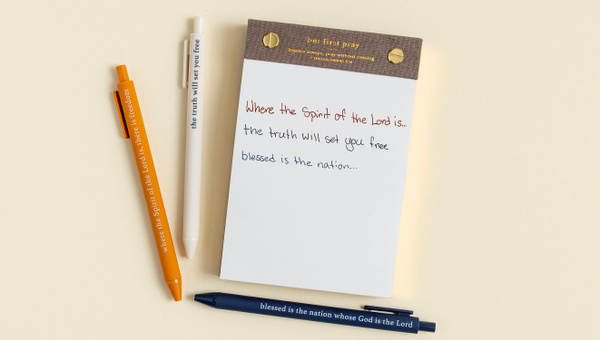 but first pray
rejoice always, pray without ceasing
1 thessalonians 5:16
Where the Spirit of the Lord is...
the truth will set you free
blessed is the nation...
where the Spirit of the Lord is, there is freedom
the truth will set you free
blessed is the nation whose God is the Lord